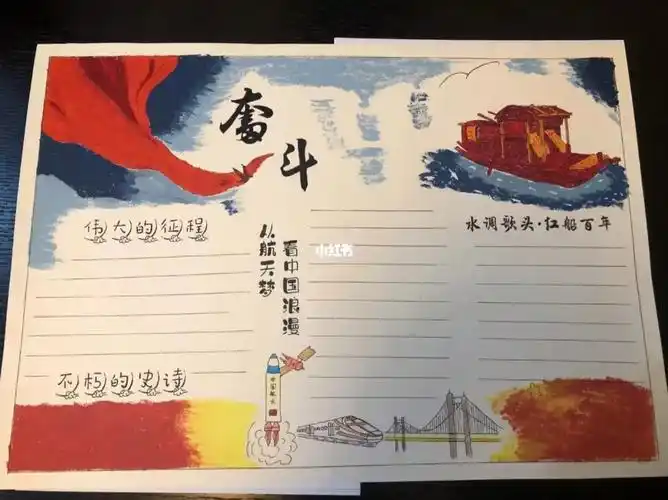 奋
斗
伟大的征程
水调歌头·红船百年
从航天梦
看中国浪漫
小红书
不朽的史诗
中国航天